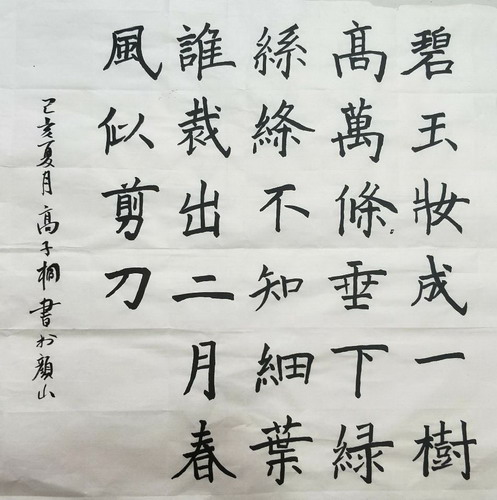 碧玉妝成一樹
髙萬條垂下緑
絲絛不知細葉
誰裁出二月春
風似剪刀
己亥夏月髙子桐書於顏山